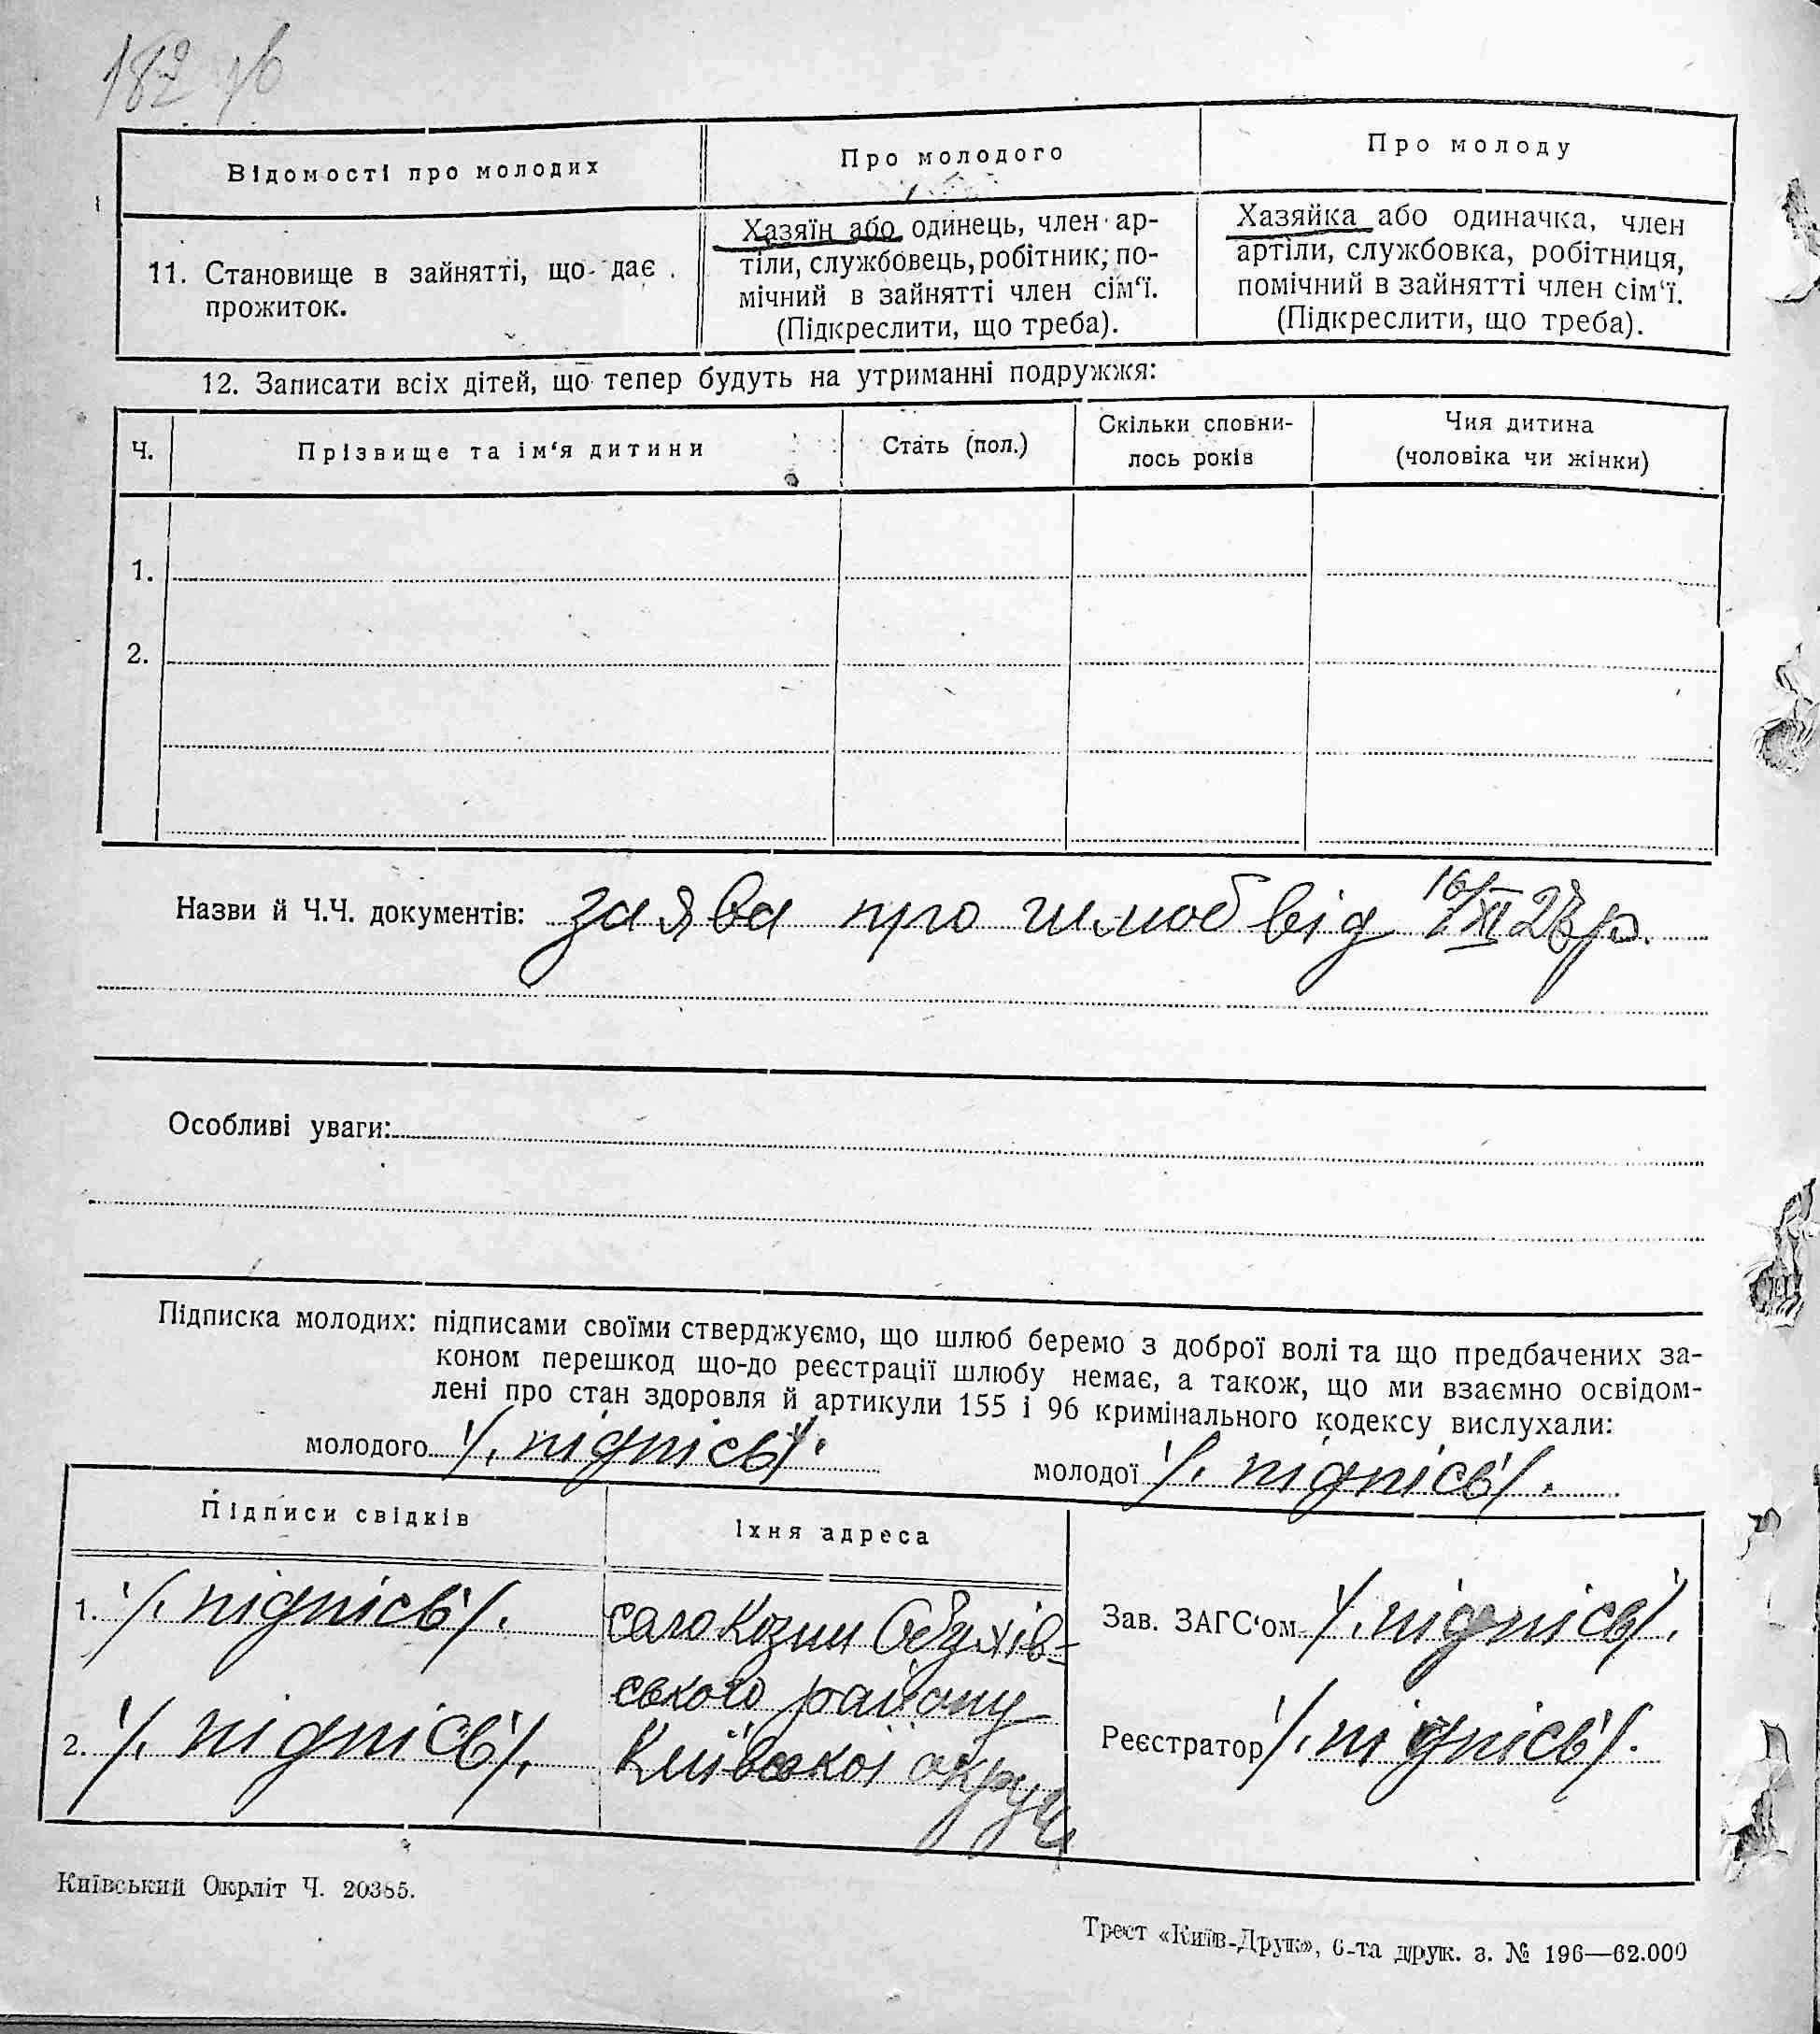 182 зв
Відомості про молодих
Про молодого
Про молоду
11. Становище в зайнятті, що дає
прожиток.
Хазяїн або одинець, член ар-
тіли, службовець, робітник, по-
мічний в зайнятті член сім‘ї.
(Підкреслити, що треба).
Хазяйка або одиначка, член
артіли, службовка, робітниця,
помічний в зайнятті член сім‘ї.
(Підкреслити, що треба).
12. Записати всіх дітей, що тепер будуть на утриманні подружжя:
Ч.
Прізвище та ім‘я дитини
Стать (пол.)
Скільки сповни-
лось років
Чия дитина
(чоловіка чи жінки)
1.
2.
Назви й Ч.Ч. документів: заява про шлюб від 16/XI 28 р.
Особливі уваги:
Підписка молодих: підписами своїми стверджуємо, що шлюб беремо з доброї волі та що предбачених за-
коном перешкод що-до реєстрації шлюбу немає, а також, що ми взаємно освідом-
лені про стан здоровля й артикули 155 і 96 кримінального кодексу вислухали:
молодого /підпісь/.
молодої /підпісь/.
Підписи свідків
Їхня адреса
1. /підпісь/.
2. /підпісь/.
село Козин Обухів-
ського району
Київської округи
Зав. ЗАГС‘ом /підпісь/.
Реєстратор /підпісь/.
Київський Окрліт Ч. 20385.
Трест «Київ-Друк», 6-та друк. з. № 196—62.000